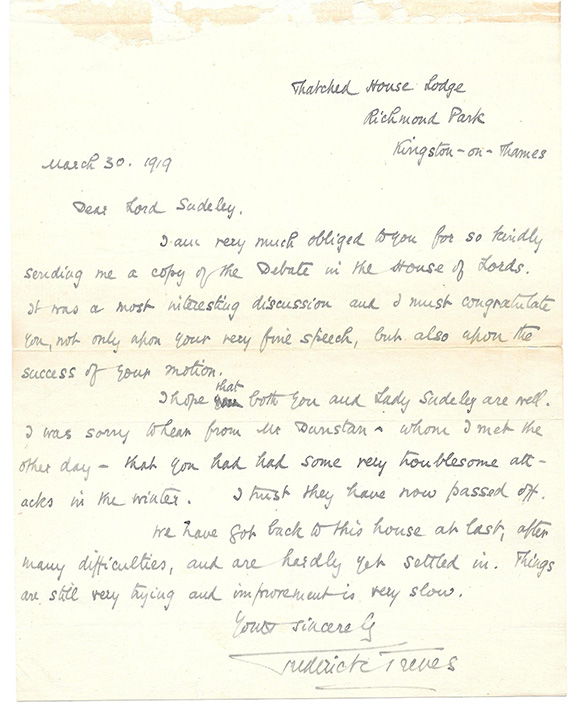 Thatched House Lodge
Richmond Park
Kingston-on-Thames
March 30. 1919
Dear Lord Sudeley.
I am very much obliged to you for so kindly
sending me a copy of the Debate in the House of Lords.
It was a most interesting discussion and I must congratulate
you, not only upon your very fine speech, but also upon the
success of your motion.
that
I hope both you and Lady Sudeley are well.
I was sorry to hear from Mr Dunstan - whom I met the
other day - that you had had some very troublesome att-
acks in the winter. I trust they have now passed off.
We have got back to this house at last, after
many difficulties, and are hardly yet settled in. Things
are still very trying and improvement is very slow.
Yours sincerely
Frederick Treves